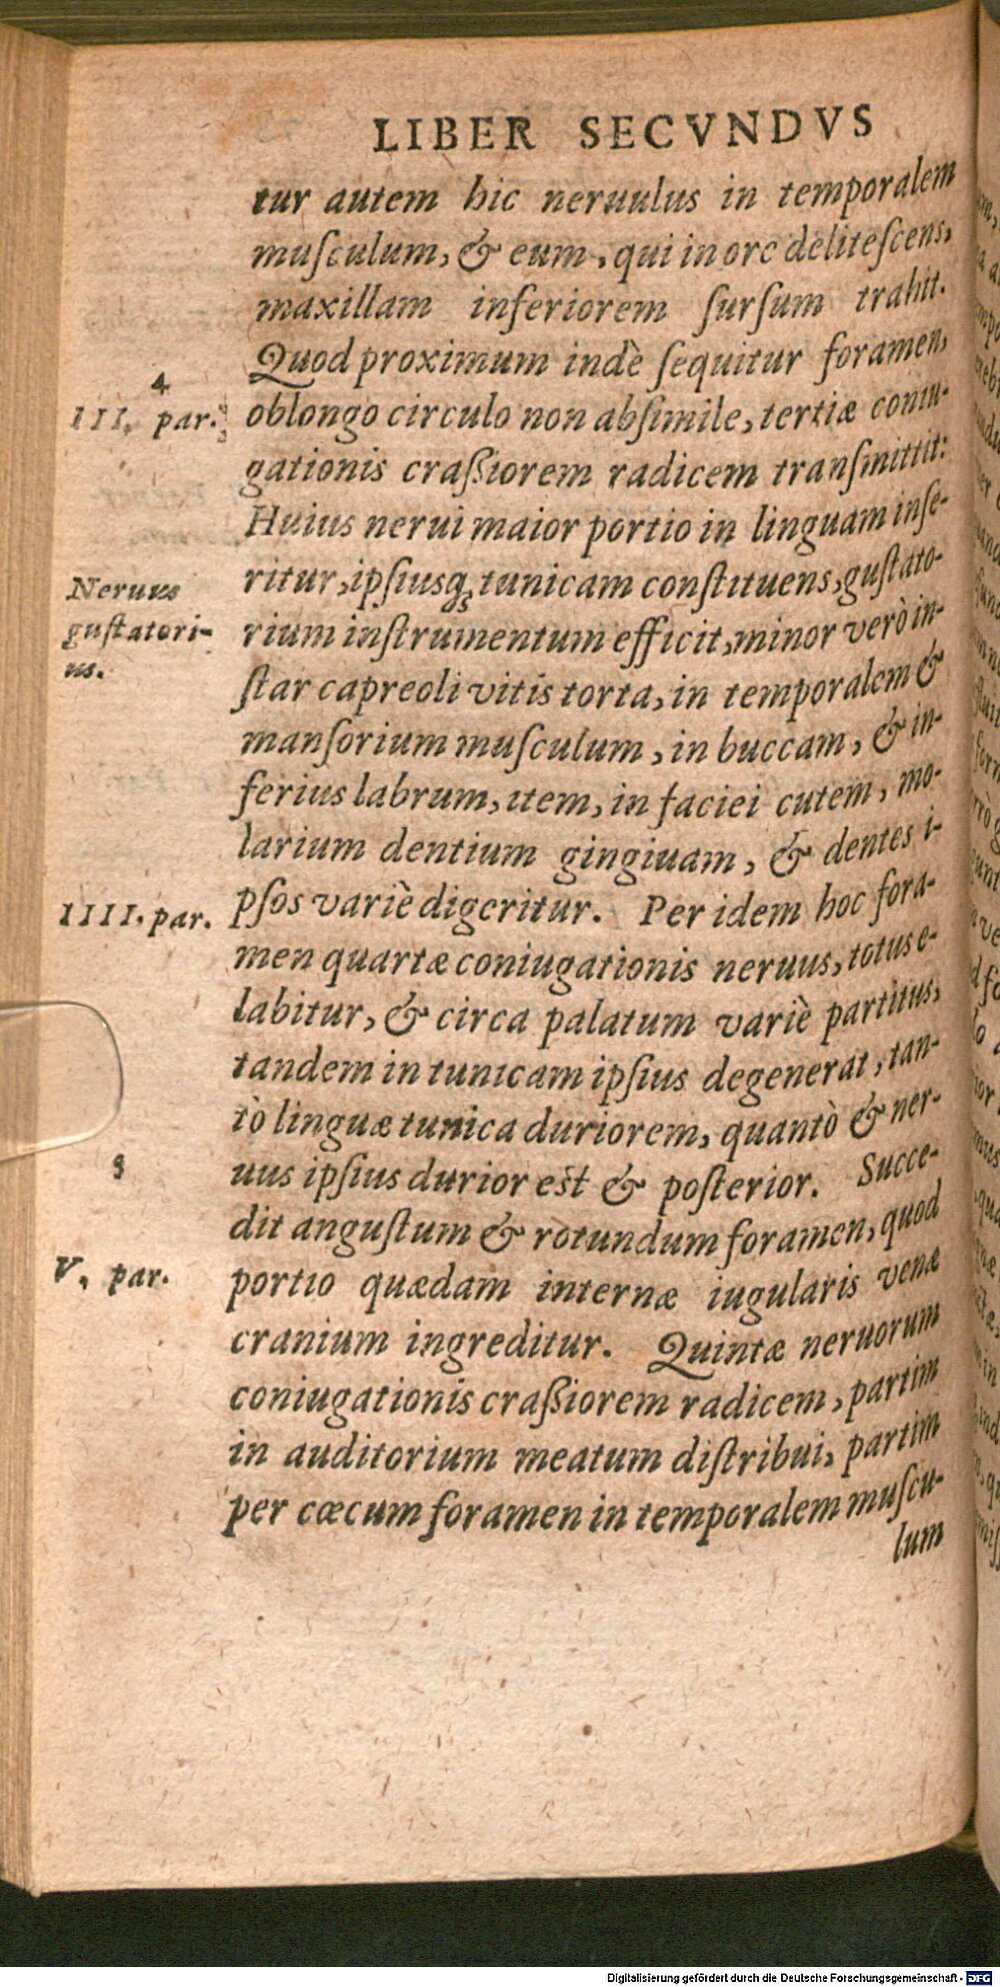 LIBER SECVNDVS
tur autem hic neruulus in temporalem
muſculum, & eum, qui in ore deliteſcens,
maxillam inferiorem ſurſum trahit.
Quod proximum indè ſequitur foramen,
4
III. par.
oblongo circulo non abſimile, tertiæ coniu-
gationis craßiorem radicem tranſmittit:
Huius nerui maior portio in linguam inſe-
Neruus
guſtatori-
us.
ritur, ipſiusq́; tunicam conſtituens, guſtato-
rium inſtrumentum efficit, minor verò in-
ſtar capreoli vitis torta, in temporalem &
manſorium muſculum, in buccam, & in-
ferius labrum, item, in faciei cutem, mo-
larium dentium gingiuam, & dentes i-
IIII. par.
pſos variè digeritur. Per idem hoc fora-
men quartæ coniugationis neruus, totus e-
labitur, & circa palatum variè partitus,
tandem in tunicam ipſius degenerat, tan-
tò linguæ tunica duriorem, quantò & ner-
uus ipſius durior est & poſterior. Succe-
dit anguſtum & rotundum foramen, quod
V. par.
portio quædam internæ iugularis venæ
cranium ingreditur. Quintæ neruorum
coniugationis craßiorem radicem, partim
in auditorium meatum diſtribui, partim
per cæcum foramen in temporalem muſcu-
lum
Digitalisierung gefördert durch die Deutsche Forschungsgemeinschaft - DFG